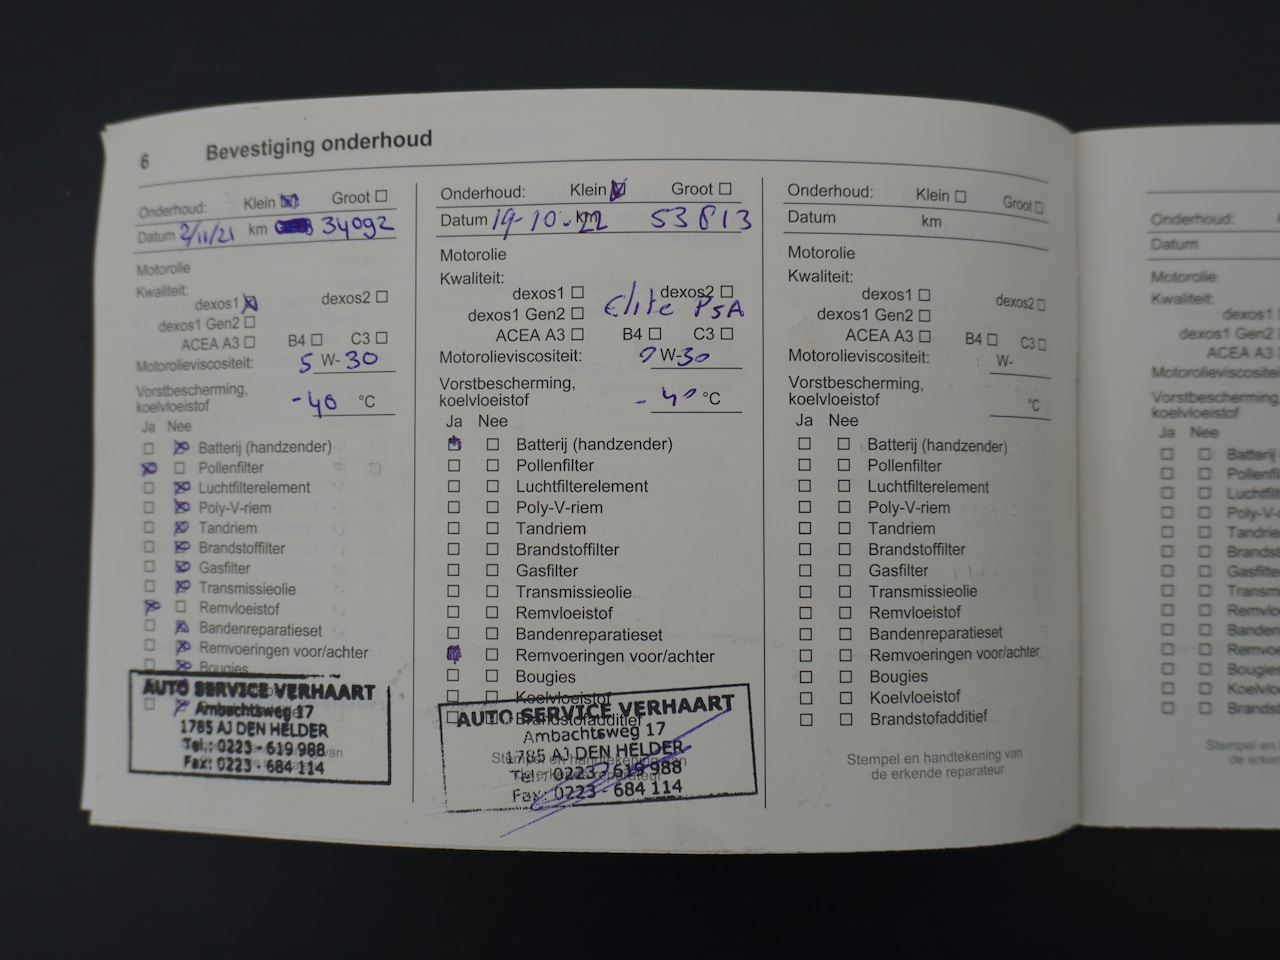 6 Bevestiging onderhoud
Onderhoud: Klein Groot
Datum 2/11/21 km 34092
Motorolie
Kwaliteit:
dexos1 dexos2
dexos1 Gen2
ACEA A3 B4 C3
Motorolieviscositeit: 5 W-30
Vorstbescherming,
koelvloeistof -40 °C
Ja Nee
Batterij (handzender)
Pollenfilter
Luchtfilterelement
Poly-V-riem
Tandriem
Brandstoffilter
Gasfilter
Transmissieolie
Remvloeistof
Bandenreparatieset
Remvoeringen voor/achter
Bougies
AUTO SERVICE VERHAART
Ambachtsweg 17
1785 AJ DEN HELDER
Tel.: 0223 - 619 988
Fax: 0223 - 684 114
Onderhoud: Klein Groot
Datum 19-10-22 km 53813
Motorolie
Kwaliteit:
dexos1 dexos2
Elite PSA
dexos1 Gen2
ACEA A3 B4 C3
Motorolieviscositeit: W-30
Vorstbescherming,
koelvloeistof -40 °C
Ja Nee
Batterij (handzender)
Pollenfilter
Luchtfilterelement
Poly-V-riem
Tandriem
Brandstoffilter
Gasfilter
Transmissieolie
Remvloeistof
Bandenreparatieset
Remvoeringen voor/achter
Bougies
Koelvloeistof
Brandstofadditief
AUTO SERVICE VERHAART
Ambachtsweg 17
1785 AJ DEN HELDER
Tel.: 0223 - 619 988
Fax: 0223 - 684 114
Stempel en handtekening van
de erkende reparateur
Onderhoud: Klein Groot
Datum km
Motorolie
Kwaliteit:
dexos1 dexos2
dexos1 Gen2
ACEA A3 B4 C3
Motorolieviscositeit: W-
Vorstbescherming,
koelvloeistof °C
Ja Nee
Batterij (handzender)
Pollenfilter
Luchtfilterelement
Poly-V-riem
Tandriem
Brandstoffilter
Gasfilter
Transmissieolie
Remvloeistof
Bandenreparatieset
Remvoeringen voor/achter
Bougies
Koelvloeistof
Brandstofadditief
Stempel en handtekening van
de erkende reparateur
Onderhoud:
Datum
Motorolie
Kwaliteit:
dexos1
dexos1 Gen2
ACEA A3
Motorolieviscositei
Vorstbescherming,
koelvloeistof
Ja Nee
Batterij
Pollenfil
Luchtfilt
Poly-V-
Tandrie
Brandst
Gasfilte
Transm
Remvlo
Banden
Remvoe
Bougies
Koelvlo
Brandst
Stempel en
de erken